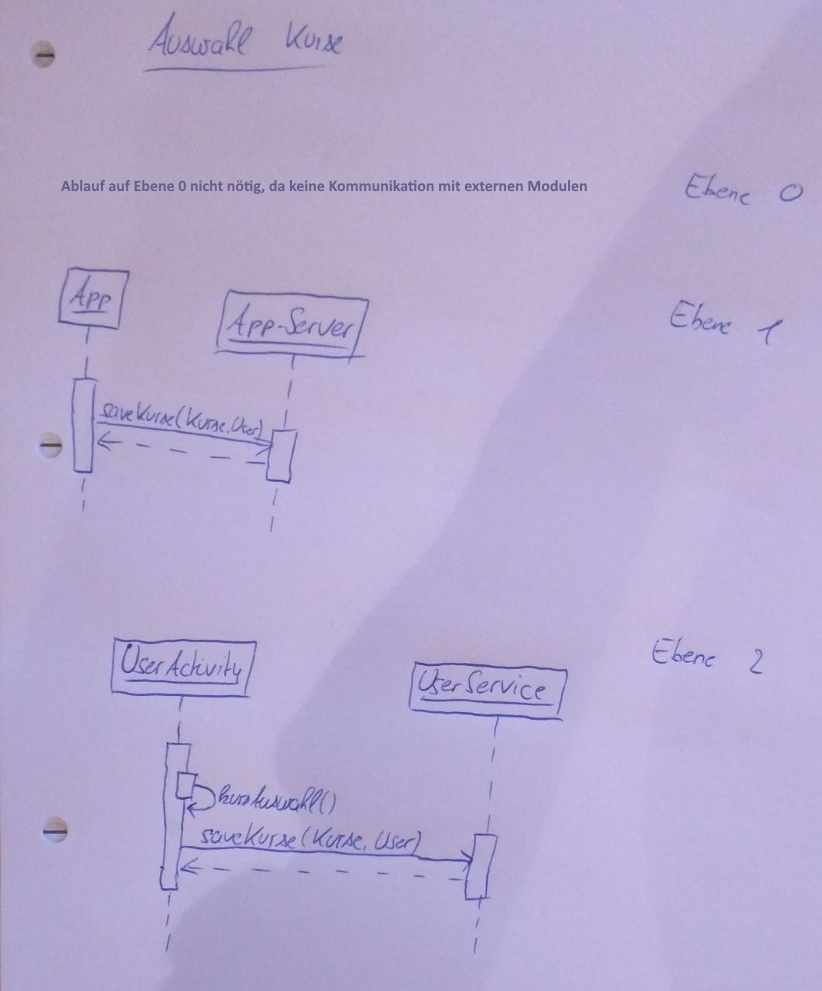 Auswahl Kurse
Ablauf auf Ebene 0 nicht nötig, da keine Kommunikation mit externen Modulen
Ebene 0
App
App-Server
Ebene 1
saveKurse(Kurse, User)
UserActivity
UserService
Ebene 2
kursAuswahl()
saveKurse(Kurse, User)